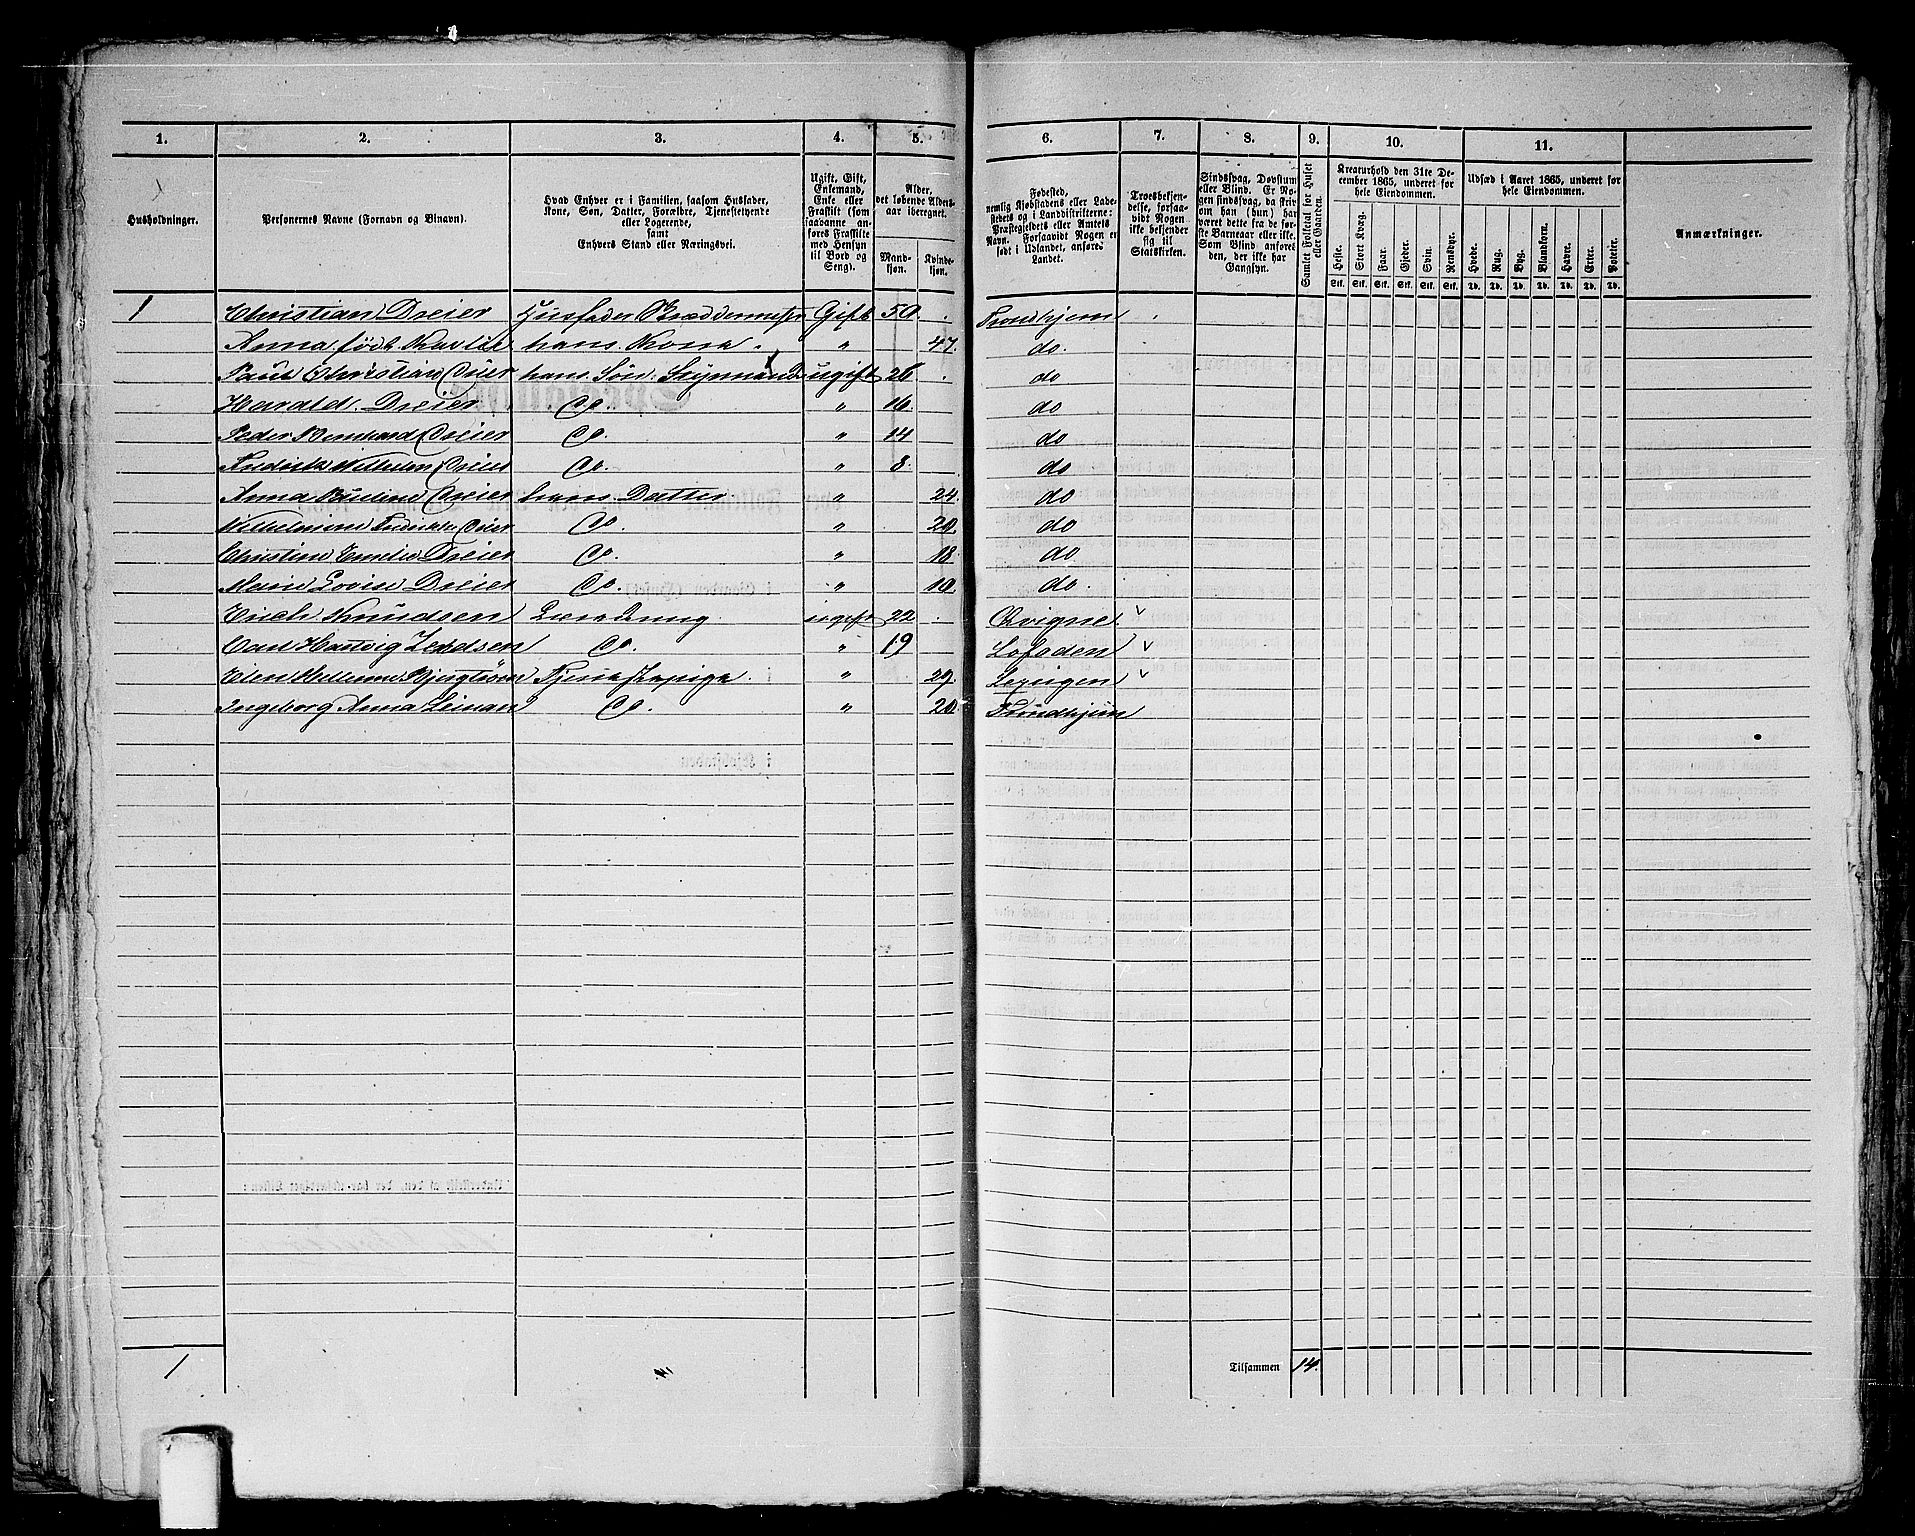 1. 2. 3. 4. 5. 6. 7. 8. 9. 10. 11.
Husholdninger.
Personernes Navne (Fornavn og Binavn).
Hvad Enhver er i Familien, saasom Husfader,
Kone, Søn, Datter, Forældre, Tjenestetyende
eller Logerende,
samt
Enhvers Stand eller Næringsvei.
Ugift, Gift,
Enkemand,
Enke eller
Fraskilt (som
saadanne an-
føres Fraskilte
med Hensyn
til Bord og
Seng).
Alder,
det løbende Alders-
aar iberegnet.
Mand-
kjøn.
Kvinde-
kjøn.
Fødested,
nemlig Kjøbstadens eller Lade-
stedets og i Landdistrikterne:
Præstegjeldets eller Amtets
Navn. Forsaavidt Nogen er
født i Udlandet, anføres
Landet.
Troesbekjen-
delse, forsaa-
vidt Nogen
ikke bekjender
sig til
Statskirken.
Sindssvag, Døvstum
eller Blind. Er No-
gen sindssvag, da skri-
ves om han (hun) har
været dette fra de før-
ste Barneaar eller ikke.
Som Blind anføres
den, der ikke har
Gangsyn.
Samlet Folketal for Huset
eller Gaarden.
Kreaturhold den 31te De-
cember 1865, underet for
hele Eiendommen.
Heste. Stort Kvæg. Faar. Gjeder. Svin. Rensdyr.
Stk. Stk. Stk. Stk. Stk. Stk.
Udsæd i Aaret 1865, underet for
hele Eiendommen.
Hvede. Rug. Byg. Blandkorn. Havre. Erter. Poteter.
Td. Td. Td. Td. Td. Td. Td.
Anmærkninger.
1 Christian Dreier Husfader Skræddermester Gift 50 . Trondhjem
Anna født hans Kone " 47. do.
Paul Christian Dreier hans Søn. ugift 26 . do
Harald Dreier Do. " 16 do
Peder Bernhard Dreier Do. " 14 do
Fredrik Wilhelm Dreier Do. " 8. do
Anna Pauline Dreier hans Datter " 24. do
Wilhelmine Fredrikke Dreier Do. " 20. do
Christine Emilie Dreier Do. " 18. do
Marie Lovise Dreier Do. " 10. do.
Erich Knudsen Læredreng ugift 22 . Qvigne v
Carl Hartvig Do. " 19 Lofoden v
Elen Tjenestepige " 29. Lexvigen v
Ingeborg Anna Do. " 20. Trondhjem
1
Tilsammen 14.